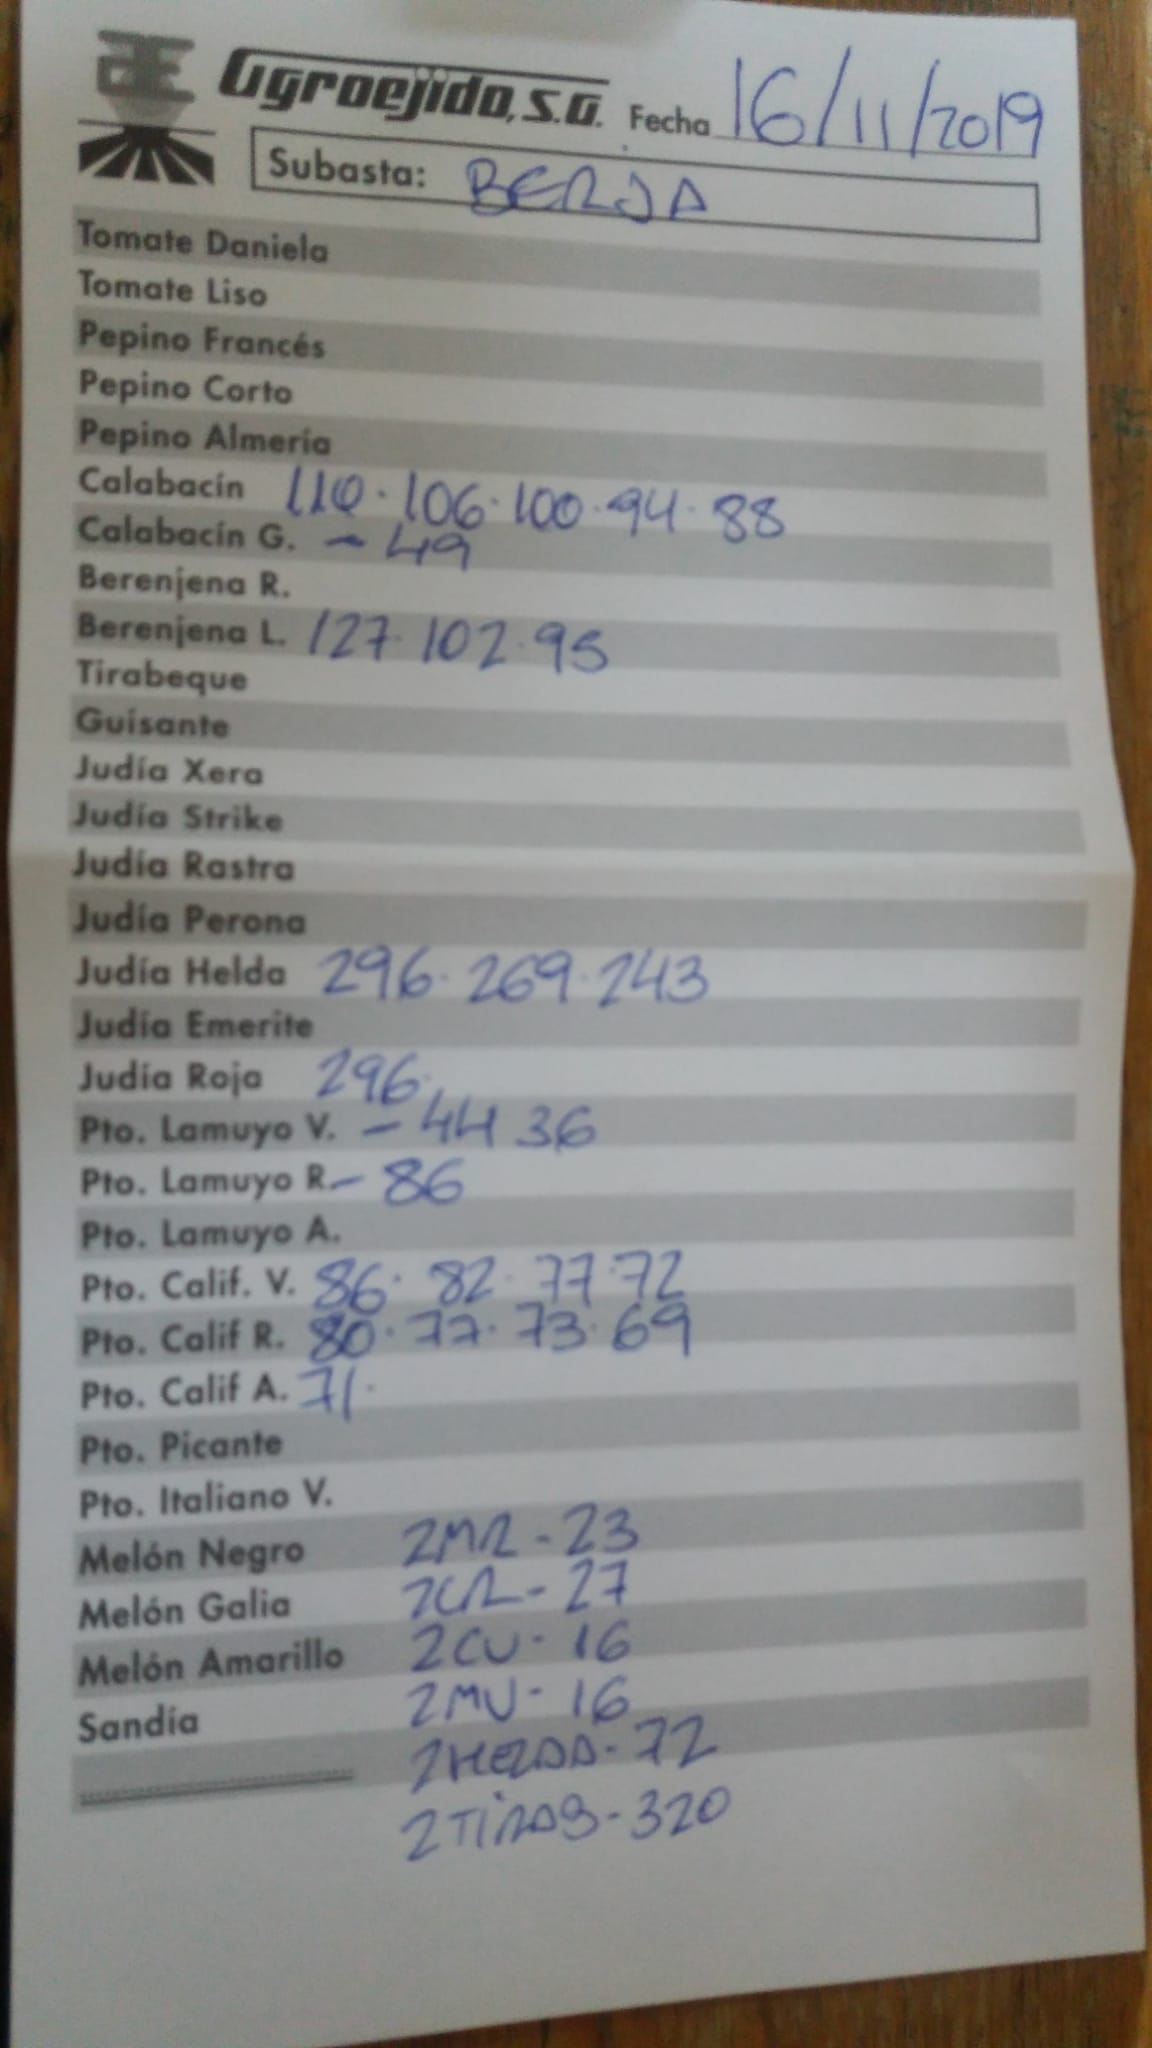 Agroejido, S.A. Fecha 16/11/2019
Subasta: BERJA
Tomate Daniela
Tomate Liso
Pepino Francés
Pepino Corto
Pepino Almería
Calabacín 110·106·100·94·88
Calabacín G. - 49
Berenjena R.
Berenjena L. 127·102·95
Tirabeque
Guisante
Judía Xera
Judía Strike
Judía Rastra
Judía Perona
Judía Helda 296·269·243
Judía Emerite
Judía Roja 296·
Pto. Lamuyo V. - 44 36
Pto. Lamuyo R. - 86
Pto. Lamuyo A.
Pto. Calif. V. 86·82·77·72
Pto. Calif R. 80·77·73·69
Pto. Calif A. 71·
Pto. Picante
Pto. Italiano V.
Melón Negro 2MR - 23
Melón Galia 2CR - 27
Melón Amarillo 2CU - 16
Sandía 2MU - 16
2HELDA - 72
2TIRAB - 320